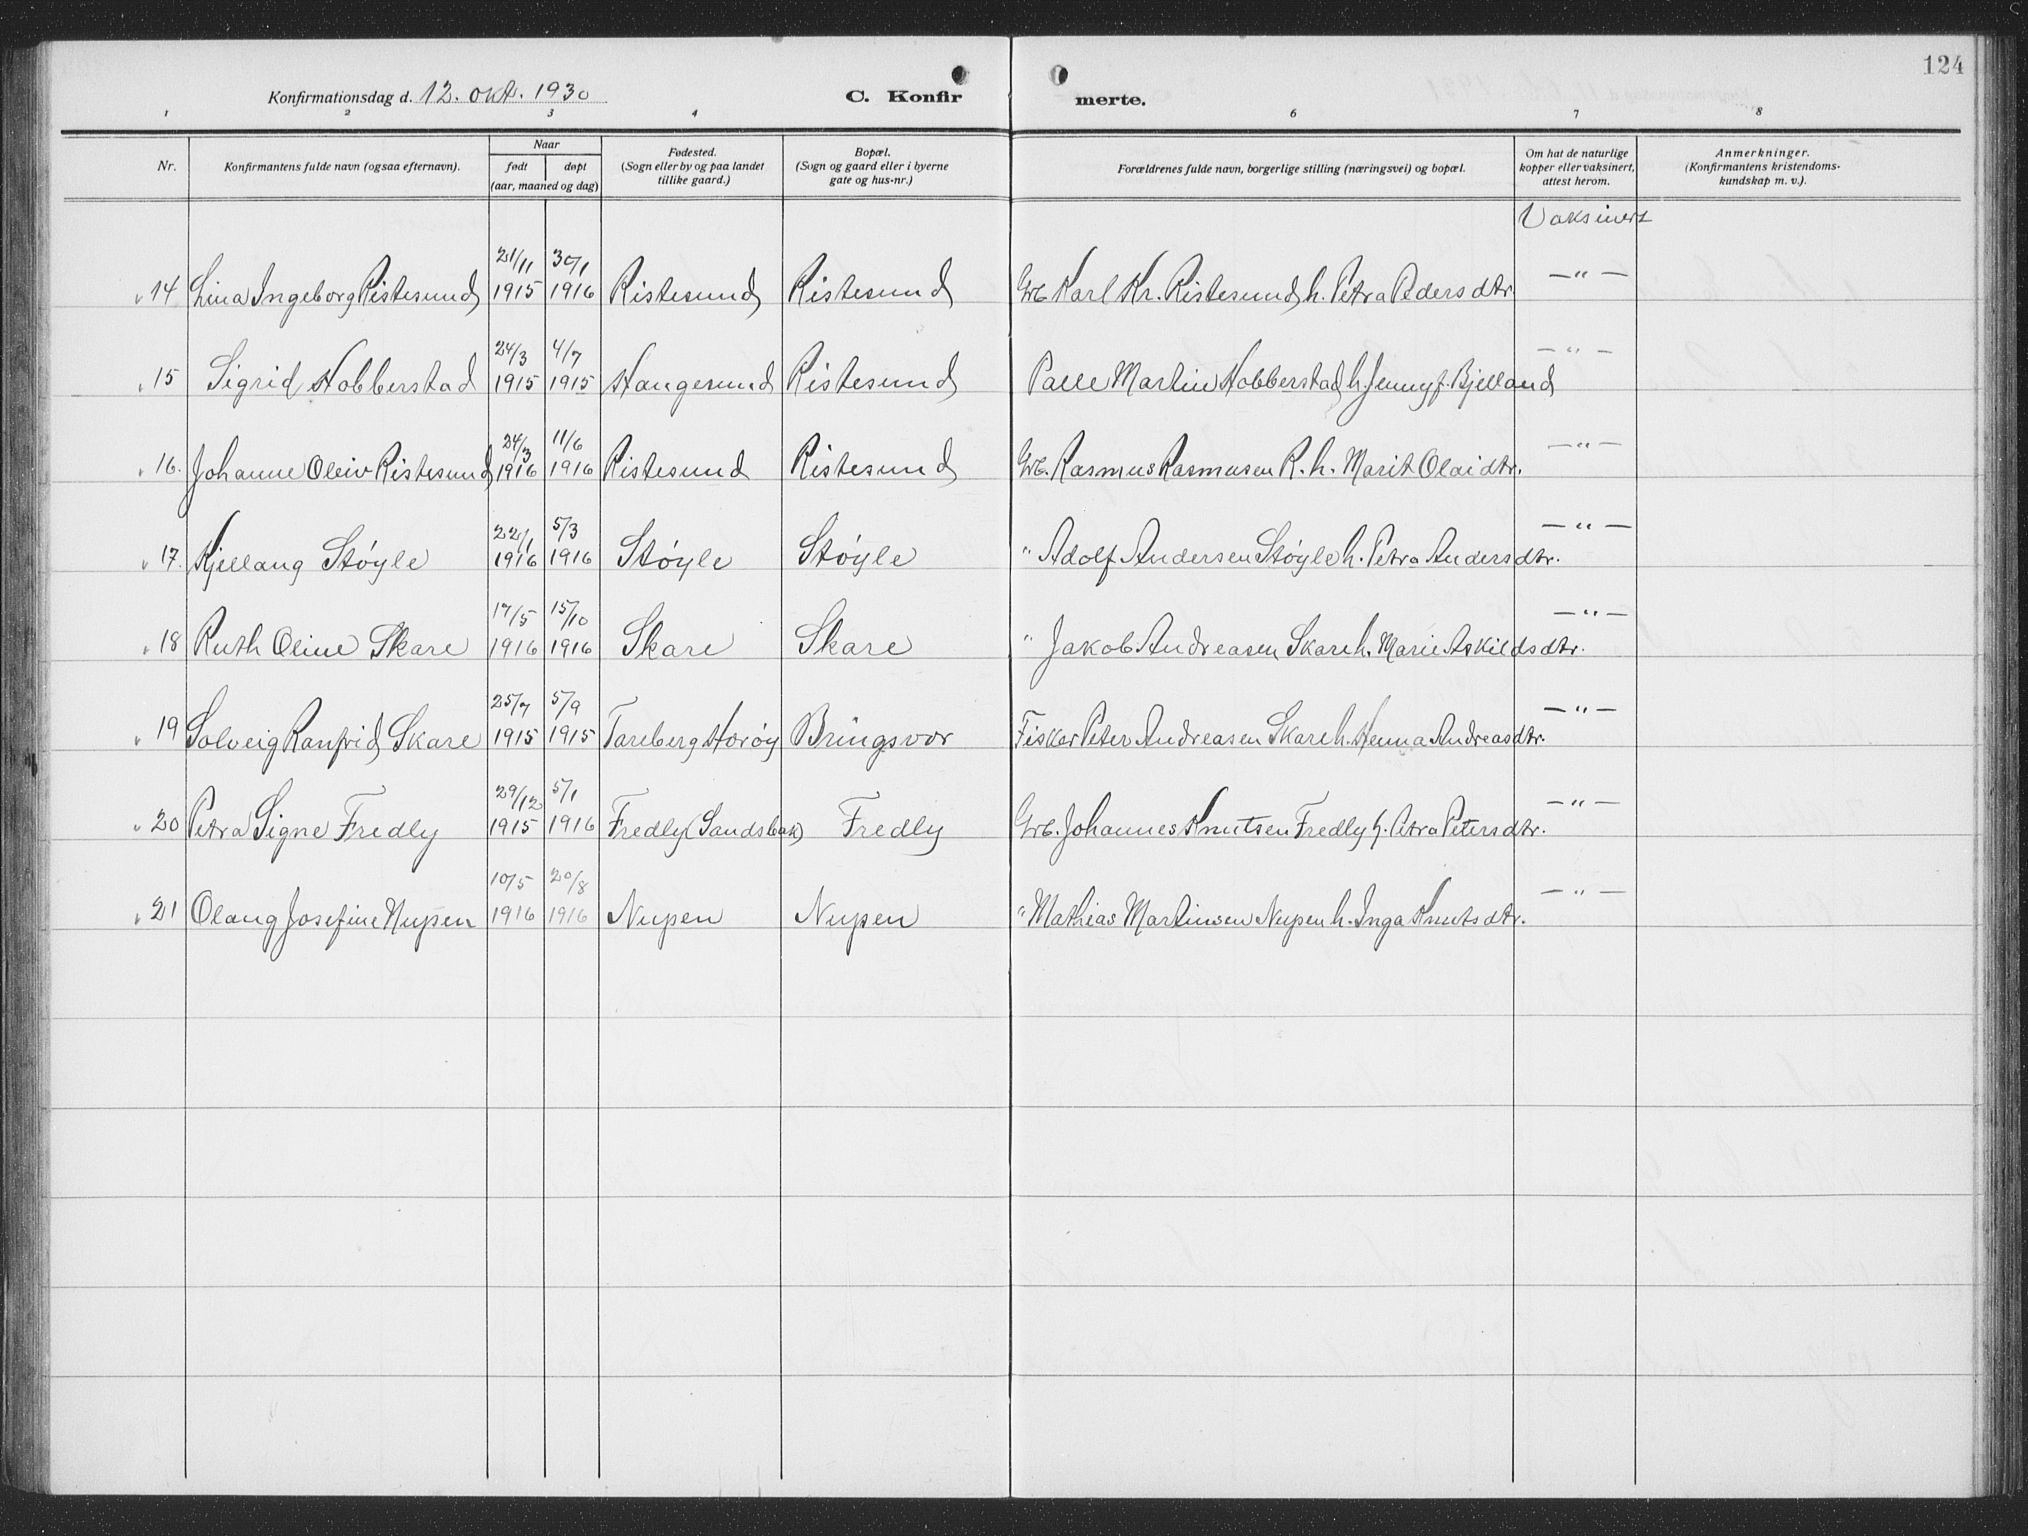 124
Konfirmationsdag d. 12. okt. 1930 C. Konfir merte.
1 2 3 4 6 7 8
Nr. Konfirmantens fulde navn (ogsaa efternavn). Naar født døpt (aar, maaned og dag) Fødested. (Sogn eller by og paa landet tillike gaard.) Bopæl. (Sogn og gaard eller i byerne gate og hus-nr.) Forældrenes fulde navn, borgerlige stilling (næringsvei) og bopæl. Om hat de naturlige kopper eller vaksinert, attest herom. Anmerkninger. (Konfirmantens kristendoms-kundskap m. v.).
Vaksinert
14 Lina Ingeborg Ristesund 21/11 1915 30/1 1916 Ristesund Ristesund Grb. Karl Kr. Ristesund h. Petra Pedersdtr. — " —
15 Sigrid Hobberstad 24/3 1915 4/7 1915 Haugesund Ristesund Palle Martin Hobberstad h. Jenny f. Bjelland — " —
16. Johanne Oleiv Ristesund 24/3 1916 11/6 1916 Ristesund Ristesund Grb. Rasmus Rasmusen R. h. Marit Olaidtr. — " —
17. Kjellaug Støyle 22/1 1916 5/3 1916 Støyle Støyle " Adolf Andersen Støyle h. Petra Andersdtr. — " —
18 Ruth Oline Skare 17/5 1916 15/10 1916 Skare Skare " Jakob Andreasen Skare h. Marie Askildsdtr. — " —
19 Solveig Ranfrid Skare 25/7 1915 5/9 1915 Tareberg Horøy Bringsvor Fisker Peter Andreasen Skare h. Henna Andreasdtr. — " —
20 Petra Signe Fredly 29/12 1915 5/1 1916 Fredly (Sandsbak) Fredly Grb. Johannes Knutsen Fredly h. Petra Petersdtr. — " —
21 Olaug Josefine Nupen 10/5 1916 20/8 1916 Nupen Nupen " Mathias Martinsen Nupen h. Inga Knutsdtr. — " —